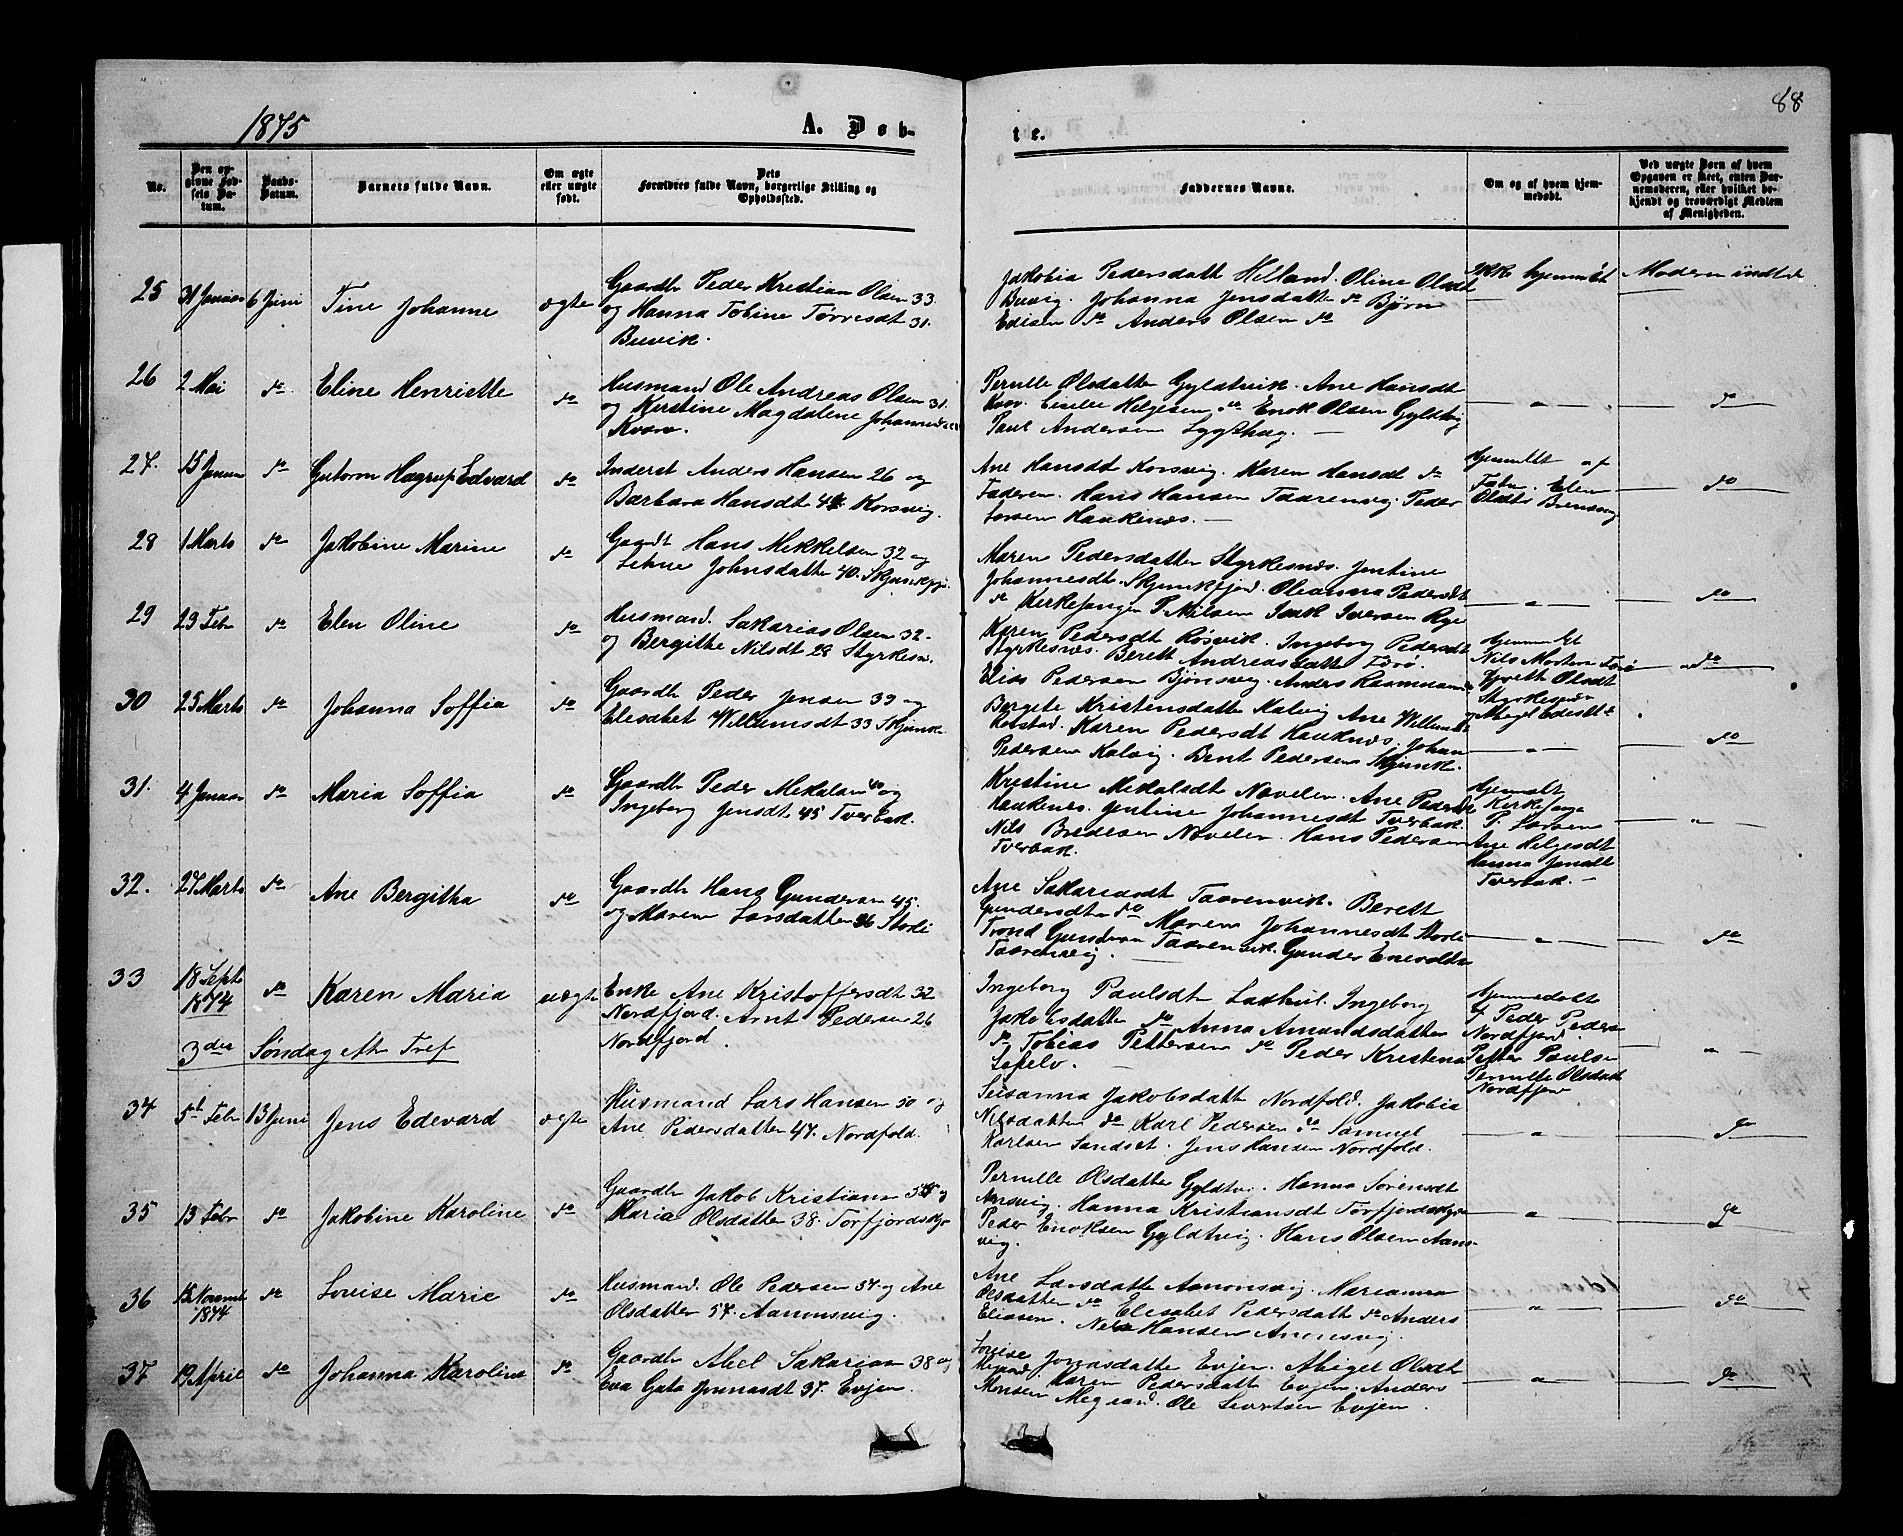 1875
A. Døb-
te.
88
No.
Den opgivne Fødsels Datum.
Daabs-Datum.
Barnets fulde Navn.
Om ægte eller uægte født.
Dets Forældres fulde Navn, borgerlige Stilling og Opholdssted.
Faddernes Navne.
Om og af hvem hjemmedøbt.
Ved uægte Børn af hvem Opgaven er skeet, enten Barnemoderen, eller hvilket bekjendt og troværdigt Medlem af Menigheden.
25 31 Januar 6 Juni Tine Johanne ægte
Gaardb Peder Kristian Olsen 33.
og Hanna Tobine Torresdt 31.
Buvik.
Jakobia Pedersdatt Helland. Oline Olsdt
Buvig. Johanna Jensdatter do Bjørn
Edisen do Anders Olsen do
Ikke hjemmedt
Moderen
26 2 Mai do Eline Henriette do
Husmand Ole Andreas Olsen 31.
og Kerstine Magdalene Johannesdt
Kvarv.
Pernille Olsdatter Gyldtvik. Ane Hansdt
Helgesen do Enok Olsen Gyldtvig
Paul Andersen
— " — do
27. 15 Januar do Gutorm Hagrup Edvard do
Inderst Anders Hansen 26 og
Barbara Hansdt 44 Korsvig.
Ane Hansdt Korsvig. Karen Hansdt do
Faderen. Hans Hansen Taarenvig. Peder
Larsen Haukenæs. —
Hjemmedt af
Elen
Olsdtr
do
28 1 Marts do Jakobine Marine do
Gaardb Hans Mikkelsen 32 og
Johnsdatter 40. Skjunkfj.
Maren Pedersdatter Styrkesnæs. Jentine
Johannesdt. Skjunkfjord. Oleanna Pedersdt
do Kirkesanger P. Nilsen Isak Iversen
— " — do
29 23 Febr do Elen Oline do
Husmand. Sakarias Olsen 32-
og Bergithe Nilsdt 28 Styrkesn.
Karen Pedersdt Røsvik. Ingeborg Pedersdt
Styrkesnæs. Berett Andreasdatter Færø.
Elias Pedersen Bjørnsvig. Anders Rasmussen
Hjemmedt
Nils Morten
Olsdt
Styrkesnæs
do
30 25 Marts do Johanna Soffia do
Gaardb Peder Jensen 39 og
Elesabet Willumsdt 33 Skjunk.
Bergete Kristensdatter Kalvig Ane Willumsdt
Karen Pedersdt Hauknæs. Johan
Pedersen Kalvig. Bent Pedersen Skjunk.
— " — do
31. 4 Januar do Maria Soffia do
Gaardb Peder Mekalsen 40 og
Ingeborg Jensdt 45 Tverbak.
Kristine Mekalsdt Navelen. Ane Pedersdt
Haukenes. Jentine Johannesdt Tverbak.
Nils Bredesen Navelen. Hans Pedersen
Tverbak.
Hjemmedt
Kirkesange
P. Larsen
Ane Helgesdt
Hanna Jensdt
Tverbak. —
"
32. 27 Marts do Ane Bergitha do
Gaardb Hans Gundersen 45.
og Maren Larsdatter 36 Storli
Ane Sakariasdt Taarenvik. Berett
Gundersdtr do Maren Johannesdt Storli
Trond Gundersen Taarenvik. Gunder Enevoldsen
Taarenvig.
— " — do
33 18 Septb 1874 do Karen Maria uægte
Enke Ane Kristoffersdt 32
Nordfjord. Arnt Pedersen 26
Nordfjord.
Ingeborg Paulsdt Laxhul. Ingeborg
Jakobsdatter do Anna Amandsdatter
do Tobias Pettersen do Peder Kristensen
Hjemmedøbt
af Peder Peders
Nordfjord.
Petter Pauls
Pernille Olsdatt
Nordfjord
"
3die Søndag efter Tref
34 5t Febr 13 Juni Jens Edevard ægte
Husmand Lars Hansen 50 og
Ane Pedersdatter 47. Nordfold.
Susanna Jakobsdatt Nordfold. Jakobia
Nilsdatter do Karl Pedersen do Samuel
Karlsen Sandset. Jens Hansen Nordfold.
— " — do
35 13 Febr do Jakobine Karoline do
Gaardb Jakob Kristiansen og
Maria Olsdatter 38. Torfjordskjr
Pernille Olsdatter Gyldtvig. Hanna Sørensdt
Hanna Kristiansdt Torfjordskjr
Peder Enoksen Gyldtvig. Hans Olsen Aans-
vig.
— " — do
36 13 Novemb 1874 do Lovise Marie do
Husmand. Ole Pedersen 57. og Ane
Olsdatter 57. Aanonsvig.
Ane Larsdatter Aanonsvig. Marianna
Olsdatter do Elesabet Pedersdatt do Anders
Eliasen. Nils Hansen Anonsvig.
" — do
37 19 April do Johanna Karoline do
Gaardb Abel Sakariasen 38 og
Eva Gata Jonnasdt 37. Evjen.
Lovise Jonasdatter Evjen. Abigel Olsdt
Karen Pedersdatter Evjen. Anders
Monsen Megaard. Ole Sivertsen Evjen.
" — do